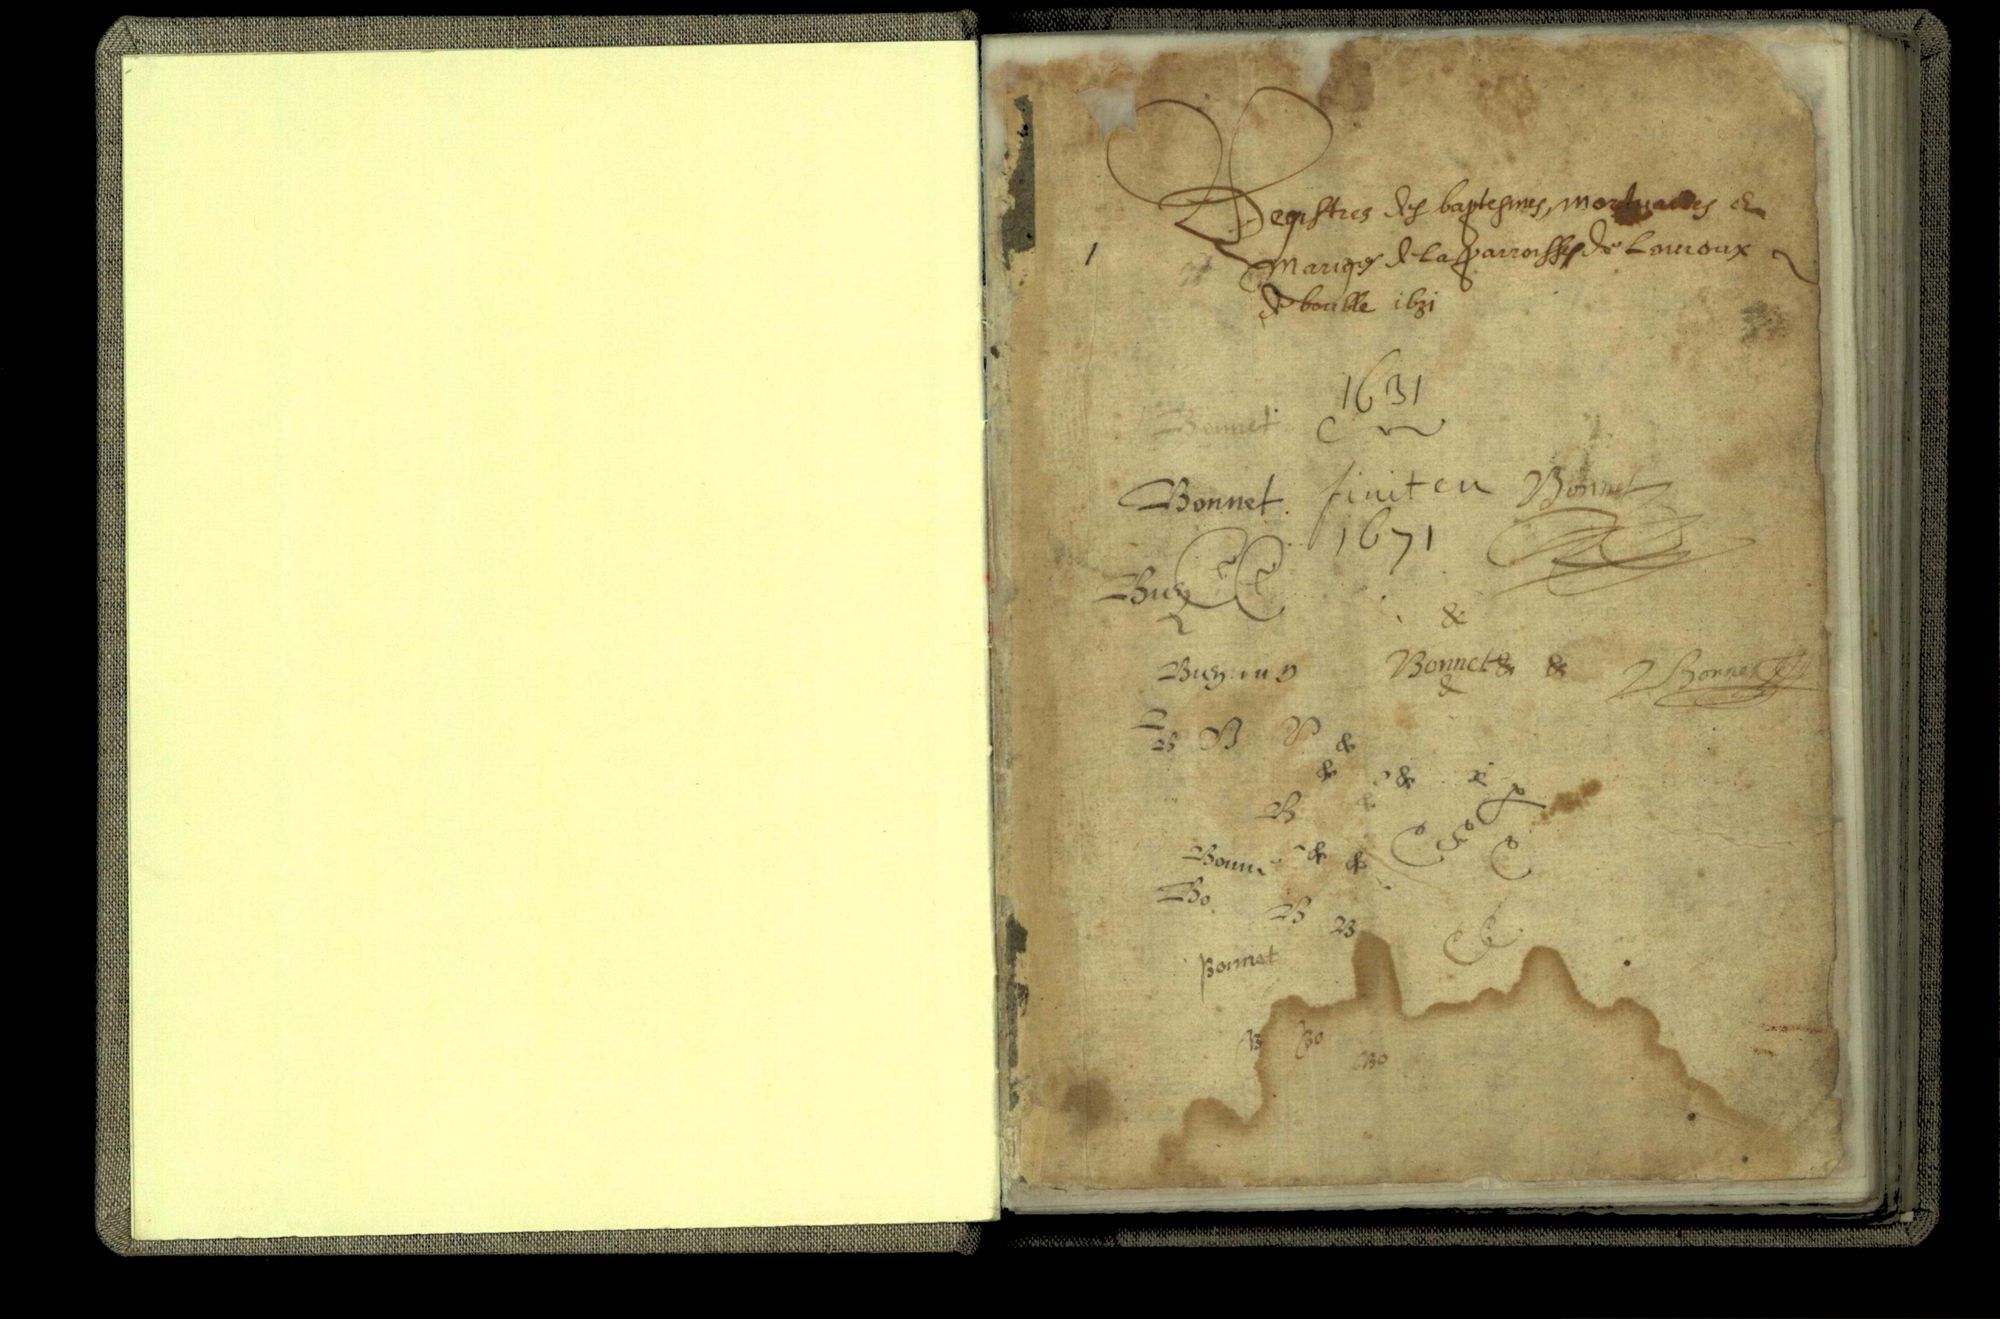 Registres des baptesmes, mortuaires &
1
Mariages de la parroisse de Louroux
de bouble 1631
1631
Bonnet
Bonnet finit en Bonnet
1671
&
Bonnet & & Bonnet
&
B B &
& &
B
Bonn & &
Bo B B
Bonnet
B Bo Bo